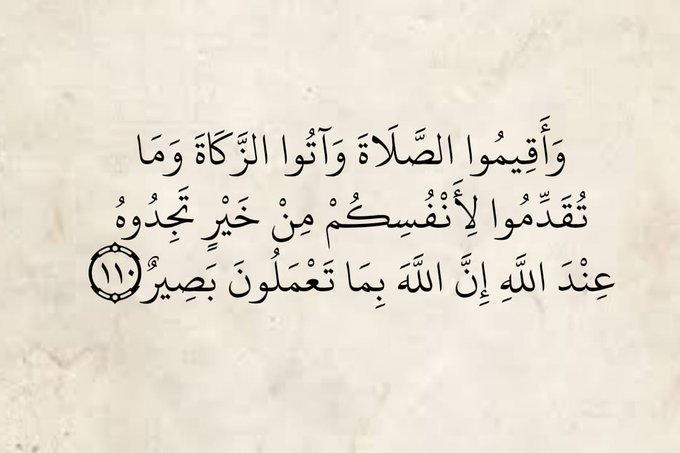 وَأَقِيمُوا الصَّلَاةَ وَآتُوا الزَّكَاةَ وَمَا
تُقَدِّمُوا لِأَنْفُسِكُمْ مِنْ خَيْرٍ تَجِدُوهُ
عِنْدَ اللَّهِ إِنَّ اللَّهَ بِمَا تَعْمَلُونَ بَصِيرٌ ١١٠